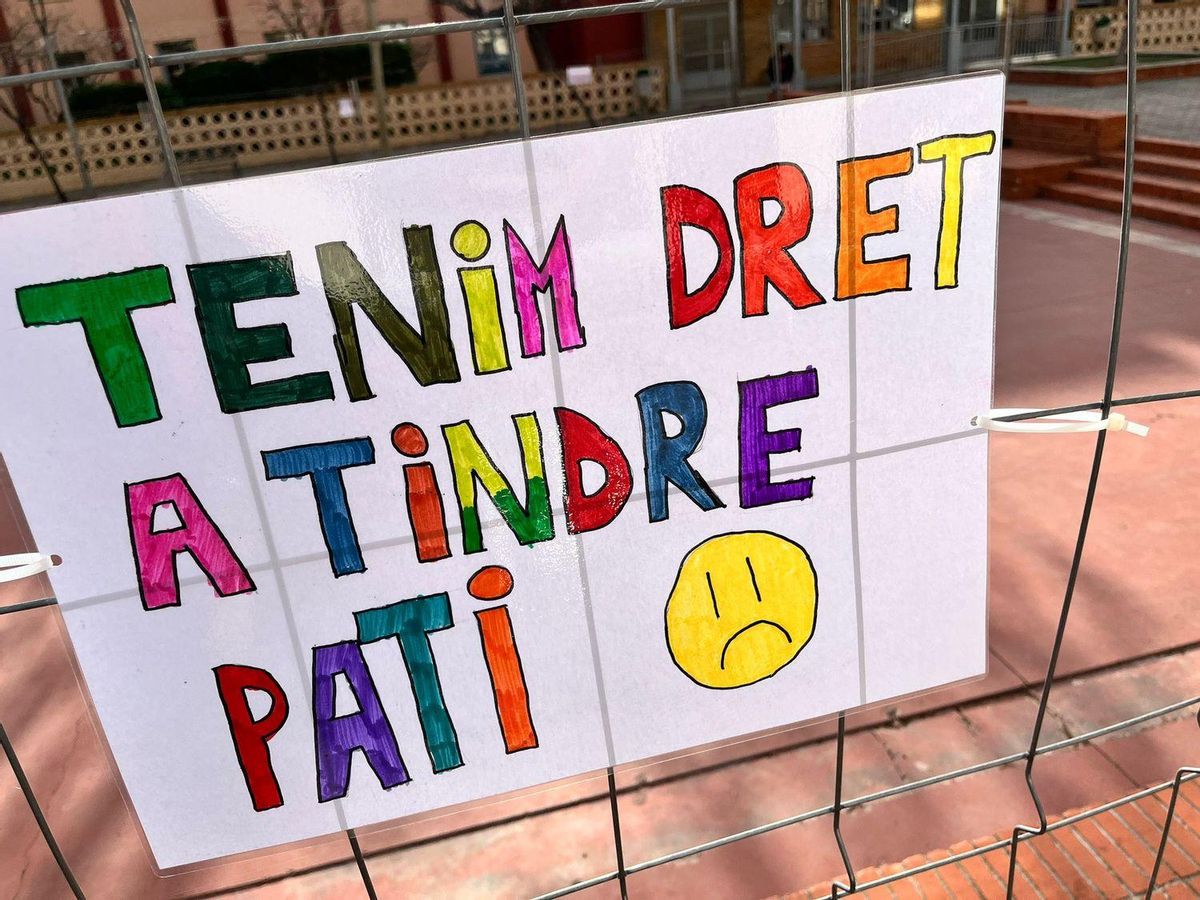 TENiM DRET
A TiNDRE
PATi